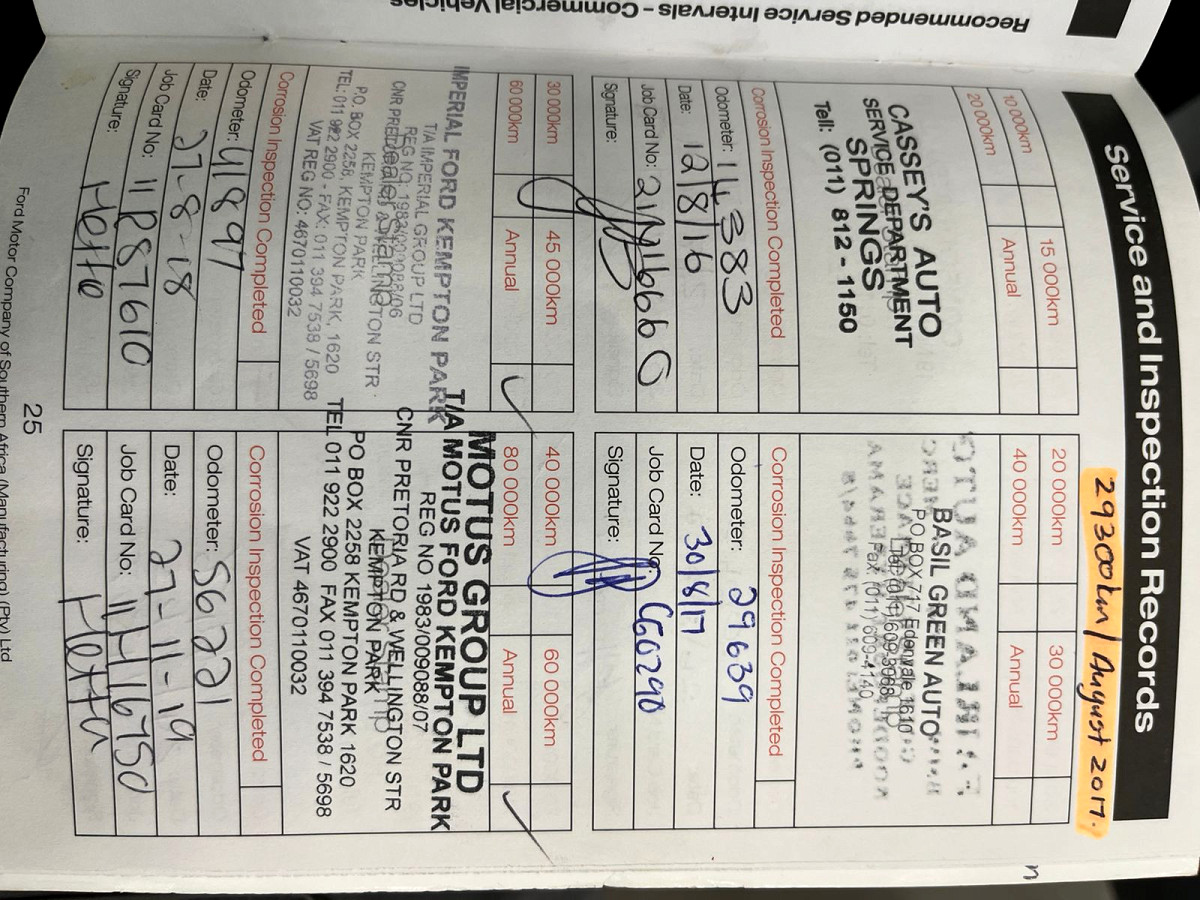 Recommended Service Intervals - Commercial Vehicles
Service and Inspection Records
29300km/August 2017.
10 000km
15 000km
20 000km
Annual
CASSEY'S AUTO
SERVICE DEPARTMENT
SPRINGS
Tell: (011) 812 - 1150
Corrosion Inspection Completed
Odometer: 14383
Date: 12/8/16
Job Card No:
Signature:
20 000km
30 000km
40 000km
Annual
BASIL GREEN AUTO
P.O BOX 717 Edenvale 1610
Fax (011) 609-4140
Corrosion Inspection Completed
Odometer: 29639
Date: 30/8/17
Job Card No: CG0290
Signature:
30 000km
45 000km
60 000km
Annual
IMPERIAL FORD KEMPTON PARK
T/A IMPERIAL GROUP LTD
REG NO: 1983/009088/06
CNR PRETORIA & WELLINGTON STR
KEMPTON PARK
P.O. BOX 2258, KEMPTON PARK, 1620
TEL: 011 922 2900 - FAX: 011 394 7538 / 5698
VAT REG NO: 4670110032
Corrosion Inspection Completed
Odometer: 41897
Date: 27-8-18
Job Card No: 11R87610
Signature:
40 000km
60 000km
80 000km
Annual
MOTUS GROUP LTD
T/A MOTUS FORD KEMPTON PARK
REG NO 1983/009088/07
CNR PRETORIA RD & WELLINGTON STR
KEMPTON PARK
PO BOX 2258 KEMPTON PARK 1620
TEL 011 922 2900 FAX 011 394 7538 / 5698
VAT 4670110032
Corrosion Inspection Completed
Odometer: 56221
Date: 27-11-19
Job Card No: 11H16750
Signature:
25
Ford Motor Company of Southern Africa (Manufacturing) (Pty) Ltd